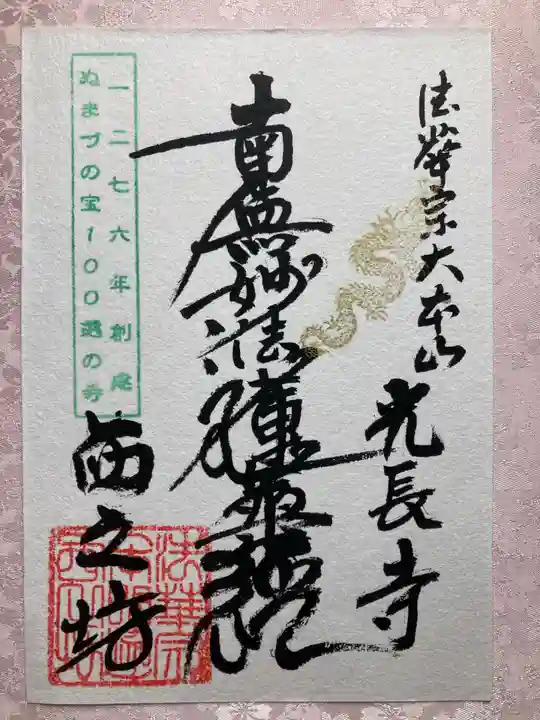 法華宗大本山 光長寺
南無妙法蓮華経
一二七六年創建
ぬまづの宝100選の寺
西之坊